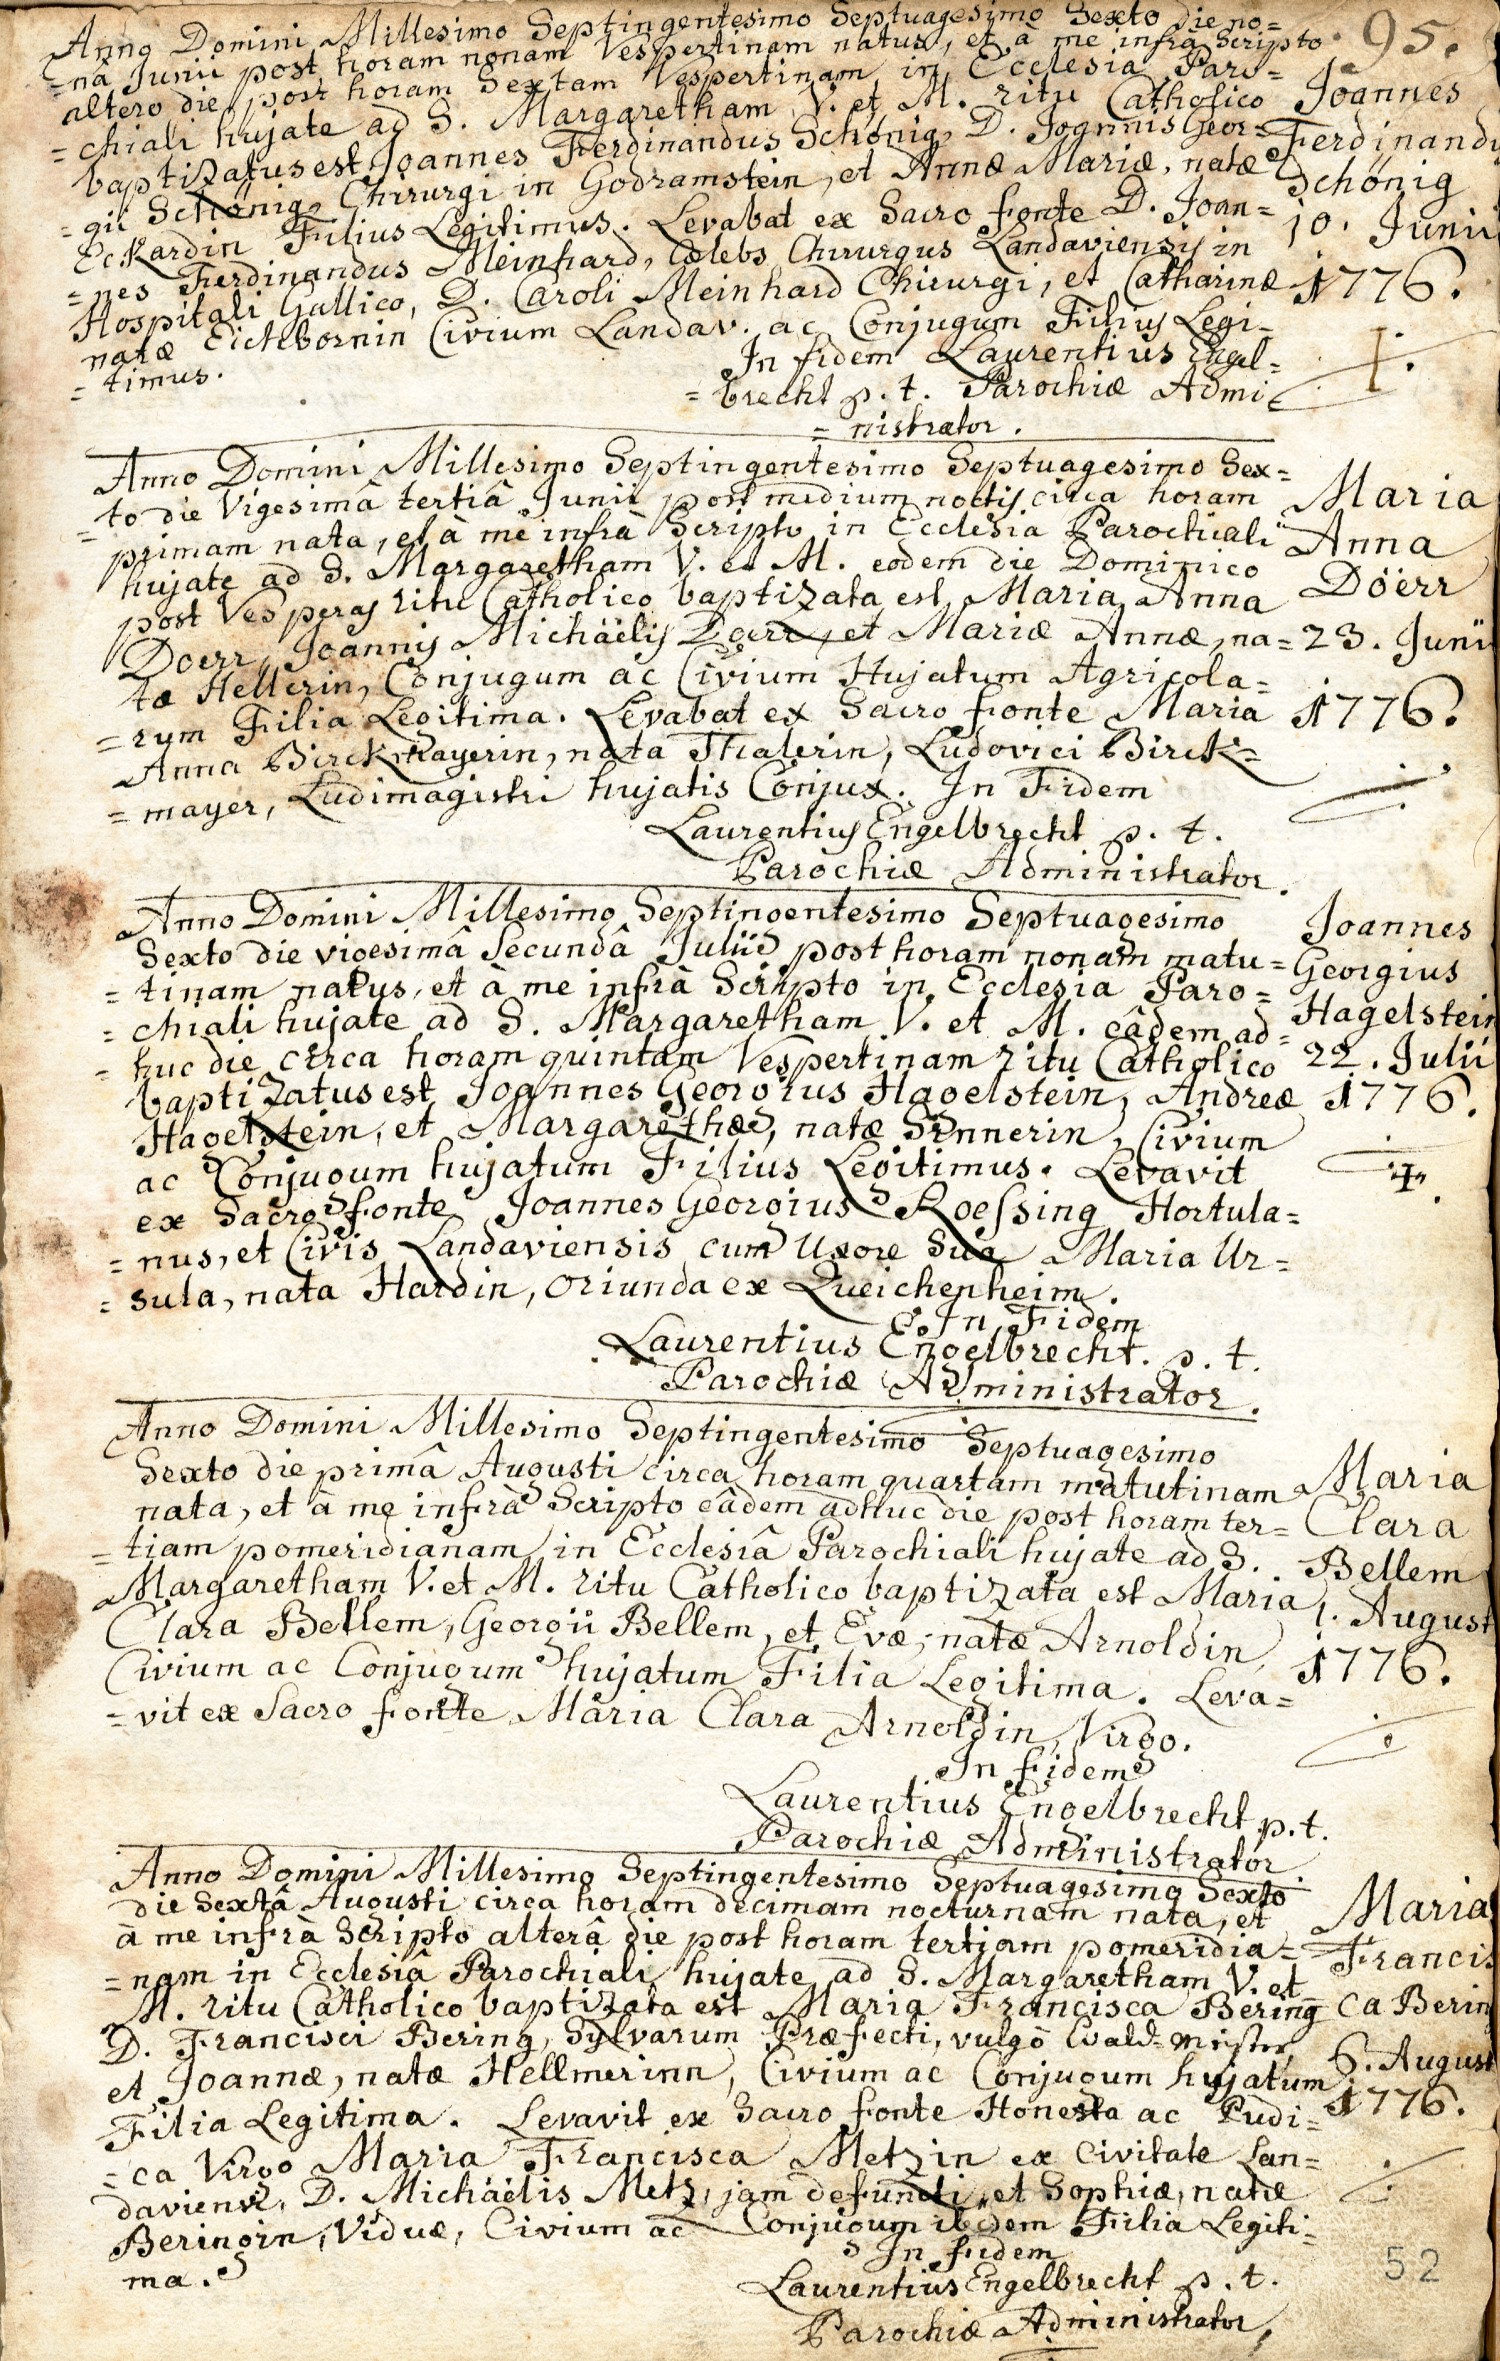 95.
Anno Domini Millesimo Septingentesimo Septuagesimo Sexto die no=
=nâ Junii post horam nonam Vespertinam natus, et à me infrà Scripto
altero die post horam Sextam Vespertinam, in Ecclesia Paro=
=chiali hujate ad S. Margaretham V. et M. ritu Catholico
baptizatus est Joannes Ferdinandus Schönig, D. Joannis Geor=
=gii Schönig, Chirurgi in Godramstein, et Annæ Mariæ, natæ
Eckardin Filius Legitimus. Levabat ex Sacro fonte D. Joan=
=nes Ferdinandus Meinhard, Cœlebs Chirurgus Landaviensis in
Hospitali Gallico, D. Caroli Meinhard Chirurgi, et Catharinæ
natæ Eichbornin Civium Landav. ac Conjugum Filius Legi=
=timus.
In fidem Laurentius Engel=
=brecht p. t. Parochiæ Admi
=nistrator.
Joannes
Ferdinandu
Schönig
10. Junii
1776.
Anno Domini Millesimo Septingentesimo Septuagesimo Sex=
=to die Vigesimâ tertiâ Junii post medium noctis circa horam
primam nata, et à me infrà Scripto in Ecclesia Parochiali
hujate ad S. Margaretham V. et M. eodem die Dominico
post Vesperas ritu Catholico baptizata est Maria Anna
Doerr, Joannis Michäelis Doerr, et Mariæ Annæ, na=
tæ Hellerin, Conjugum ac Civium Hujatum Agricola=
=rum Filia Legitima. Levabat ex Sacro fonte Maria
Anna Birckmayerin, nata Thalerin, Ludovici Birck=
=mayer, Ludimagistri hujatis Conjux. In Fidem
Laurentius Engelbrecht p. t.
Parochiæ Administrator.
Maria
Anna
Döerr
23. Junii
1776.
Anno Domini Millesimo Septingentesimo Septuagesimo
Sexto die vigesimâ Secundâ Julii post horam nonam matu=
=tinam natus, et à me infrà Scripto in Ecclesia Paro=
=chiali hujate ad S. Margaretham V. et M. eâdem ad=
=huc die circa horam quintam Vespertinam ritu Catholico
baptizatus est Joannes Georgius Hagelstein, Andreæ
Hagelstein, et Margarethæ, natæ Sennerin, Civium
ac Conjugum hujatum Filius Legitimus. Levavit
ex Sacro fonte Joannes Georgius Roessing Hortula=
=nus, et Civis Landaviensis cum Uxore Sua Maria Ur=
=sula, nata Hardin, oriunda ex Queichenheim.
In Fidem
Laurentius Engelbrecht. p. t.
Parochiæ Administrator.
Joannes
Georgius
Hagelstein
22. Julii
1776.
Anno Domini Millesimo Septingentesimo Septuagesimo
Sexto die primâ Augusti circa horam quartam matutinam
nata, et à me infrà Scripto eâdem adhuc die post horam ter=
=tiam pomeridianam in Ecclesiâ Parochiali hujate ad S.
Margaretham V. et M. ritu Catholico baptizata est Maria
Clara Bellem, Georgii Bellem, et Evæ, natæ Arnoldin,
Civium ac Conjugum hujatum Filia Legitima. Leva=
=vit ex Sacro fonte Maria Clara Arnoldin, Virgo.
In fidem
Laurentius Engelbrecht p. t.
Parochiæ Administrator
Maria
Clara
Bellem
1. August
1776.
Anno Domini Millesimo Septingentesimo Septuagesimo Sexto
die Sextâ Augusti circa horam decimam nocturnam nata, et
à me infrà Scripto alterâ die post horam tertiam pomeridia=
=nam in Ecclesiâ Parochiali hujate ad S. Margaretham V. et
M. ritu Catholico baptizata est Maria Francisca Bering
D. Francisci Bering, Sylvarum Præfecti, vulgò Wald=meister,
et Joannæ, natæ Hellmerinn, Civium ac Conjugum hujatum
Filia Legitima. Levavit ex Sacro fonte Honesta ac Pudi=
=ca Virgo Maria Francisca Metzin ex Civitate Lan=
daviensi, D. Michäelis Metz, jam defuncti, et Sophiæ, natæ
Beringin, Viduæ, Civium ac Conjugum ibidem Filia Legiti=
ma.
In fidem
Laurentius Engelbrecht p. t.
Parochiæ Administrator,
Maria
Francis
ca Berin
6. August
1776.
52